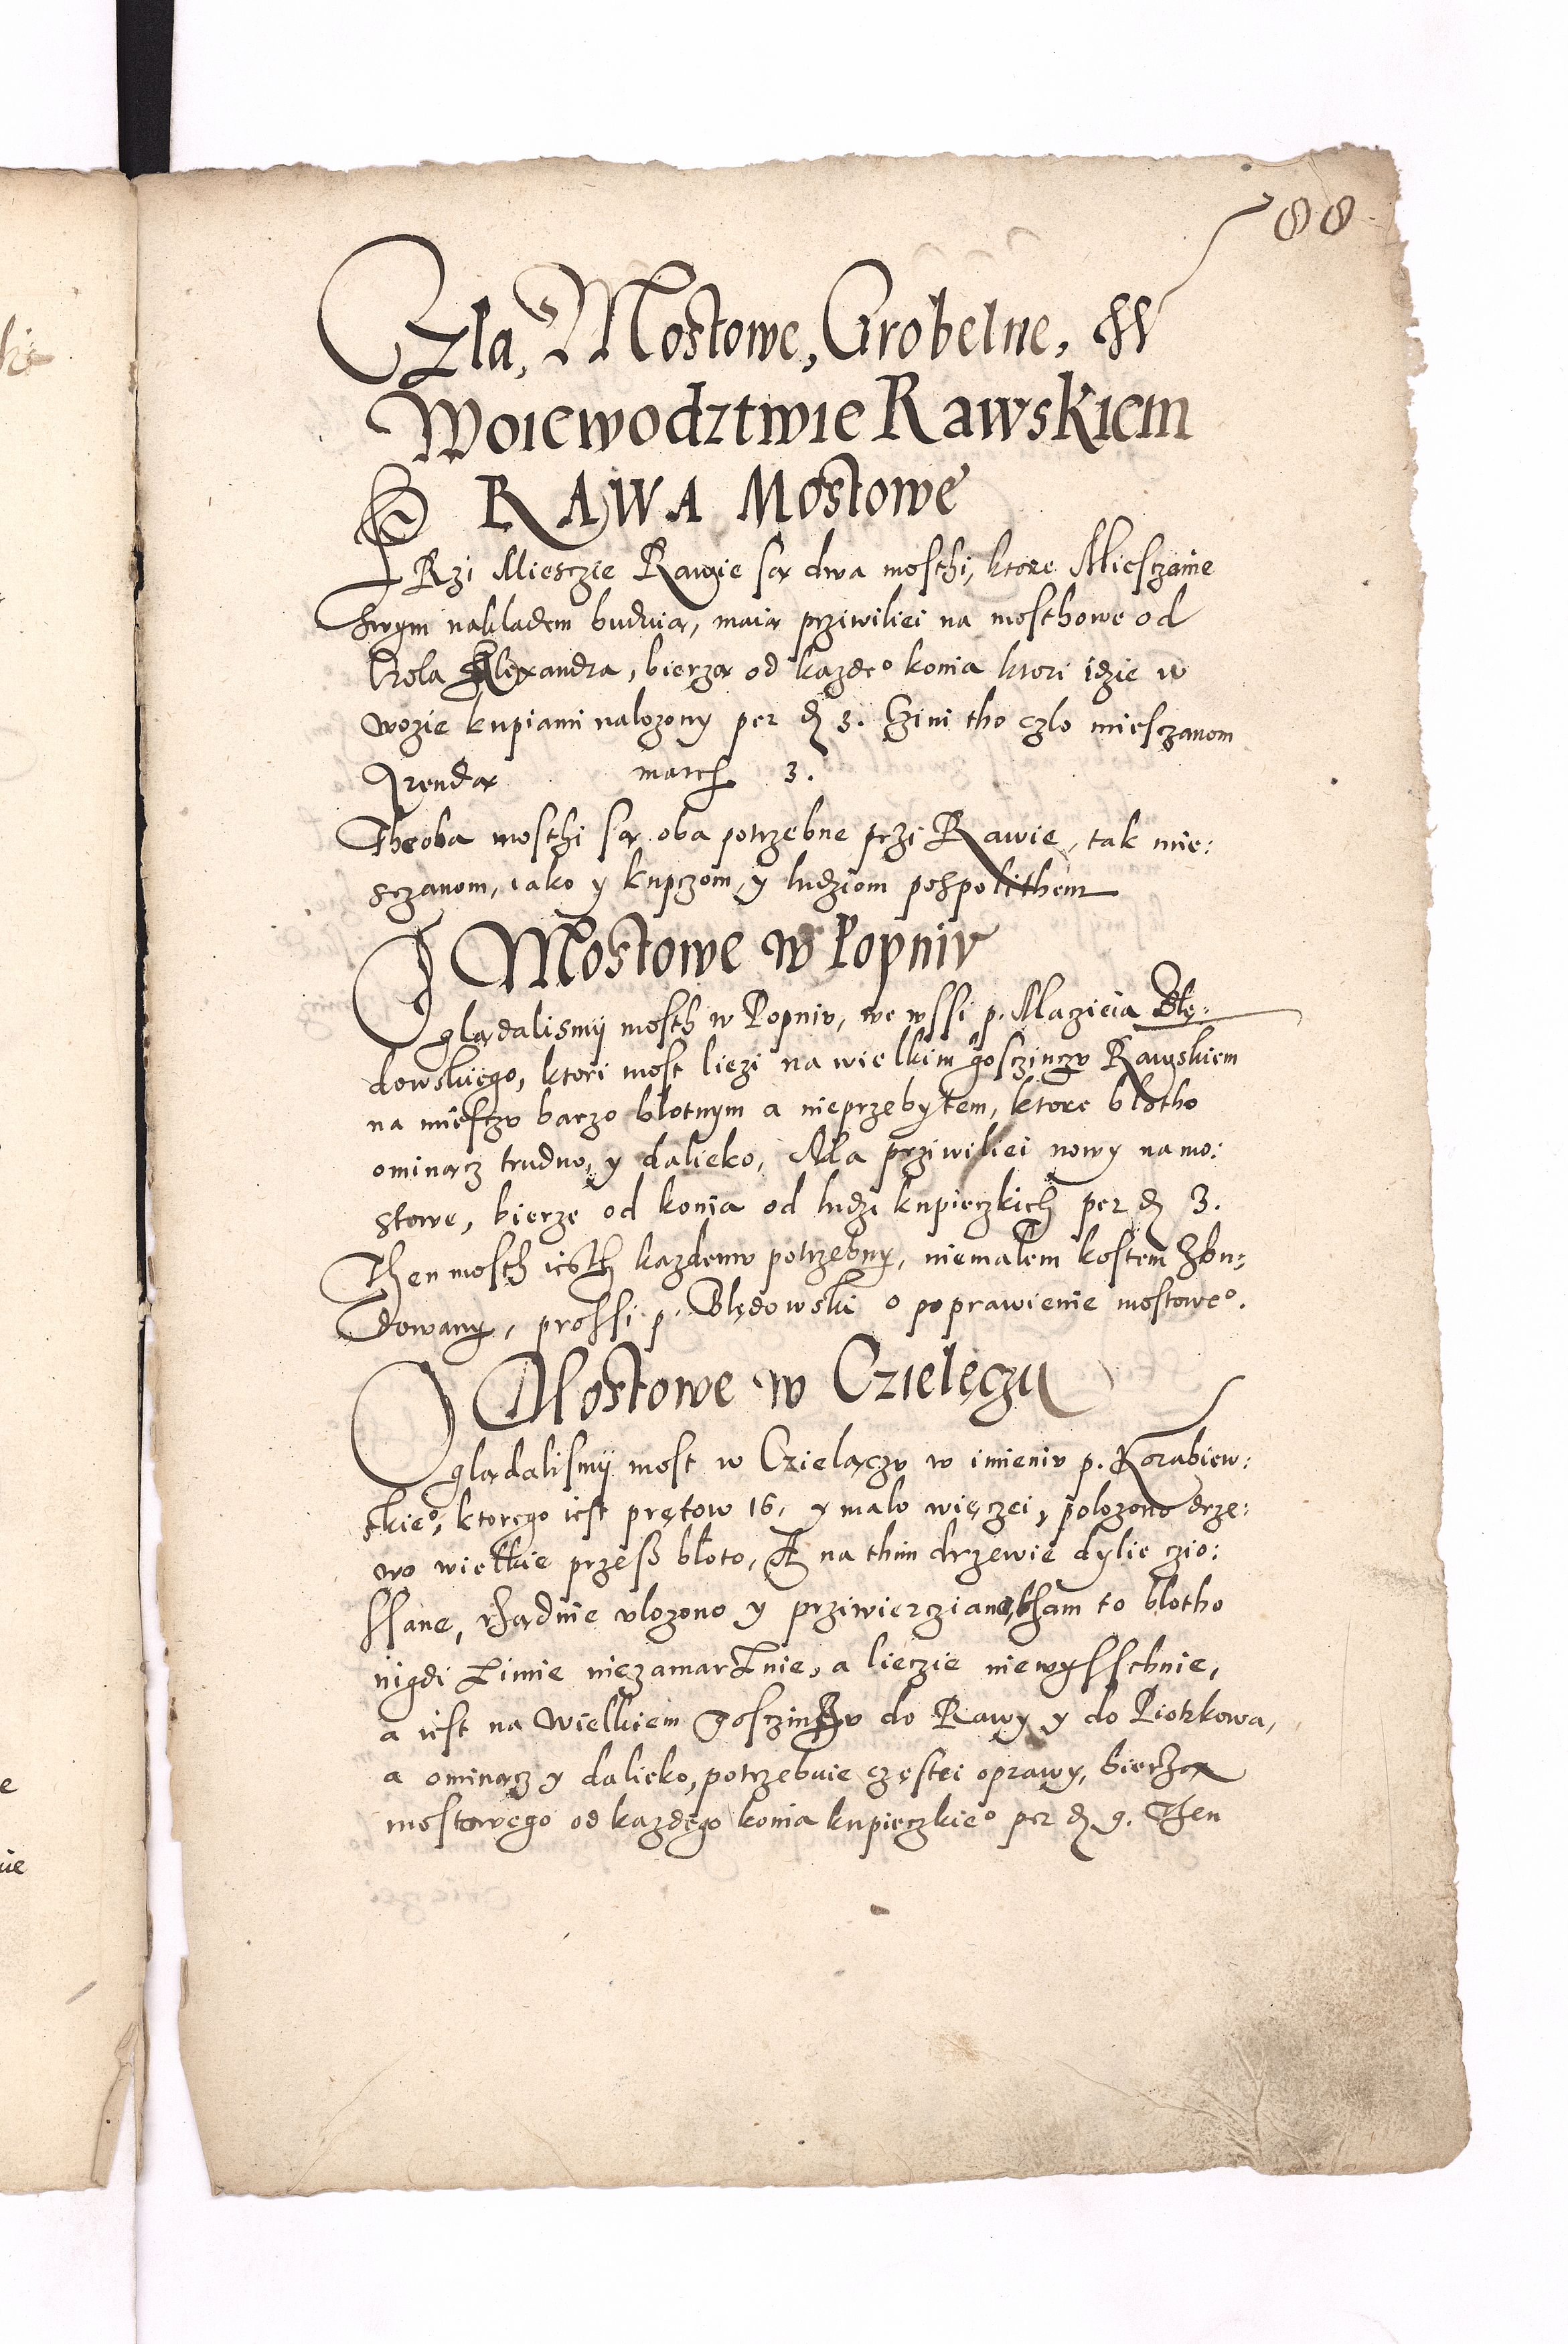 88
Czla, Mostowe, Grobelne, W
Woiewodztwie Rawskiem
RAWA Mostowe
PRzi Miesczie Rawie są dwa mosthi, ktore Miesczanie
swym nakladem buduią, maią prziwiliei na mosthowe od
Krola Alexandra, bierzą od kazdeº konia ktori idzie w
wozie kupiami nalozony per ₰ 3. Czini tho czlo miesczanom
Arendą march. 3.
The oba mosthi są oba potrzebne przi Rawie, tak mie:
sczanom, iako y kupczom, y ludziom pospolithem
Mostowe w Popniv
Oglądalismy mosth w Popniv, we wssi p. Macieia Blę:
dowskiego, ktori most liezi na wielkim gosczinczv Rawskiem
na miesczv barzo blotnym a nieprzebytem, ktore blotho
ominącz trudno, y dalieko, Ma prziwiliei nowy na mo:
stowe, bierze od konia od ludzi kupieczkich per ₰ 3.
Then mosth iesth kazdemv potrzebny, niemalem kostem zbu:
dowany, prossi p. Blędowski o poprawienie mostoweº.
Mostowe w Czielęczu
Oglądalismy most w Czielączv w imieniv p. Korabiew:
skieº, ktorego iest prętow 16, y malo więczei, polozono drze:
wo wielkie przesß bloto, A na thim drzewie dylie czio:
ssane, rządnie vlozono y prziwiercziano, tham to blotho
nigdi zimie niezamarznie, a liecie niewysschnie,
a iest na wielkiem gosczinczv do Rawy y do Piotrkowa,
a ominącz y dalieko, potrzebuie częstei oprawy, bierzą
mostowego od kazdego konia kupieczkieº per ₰ 9. Then